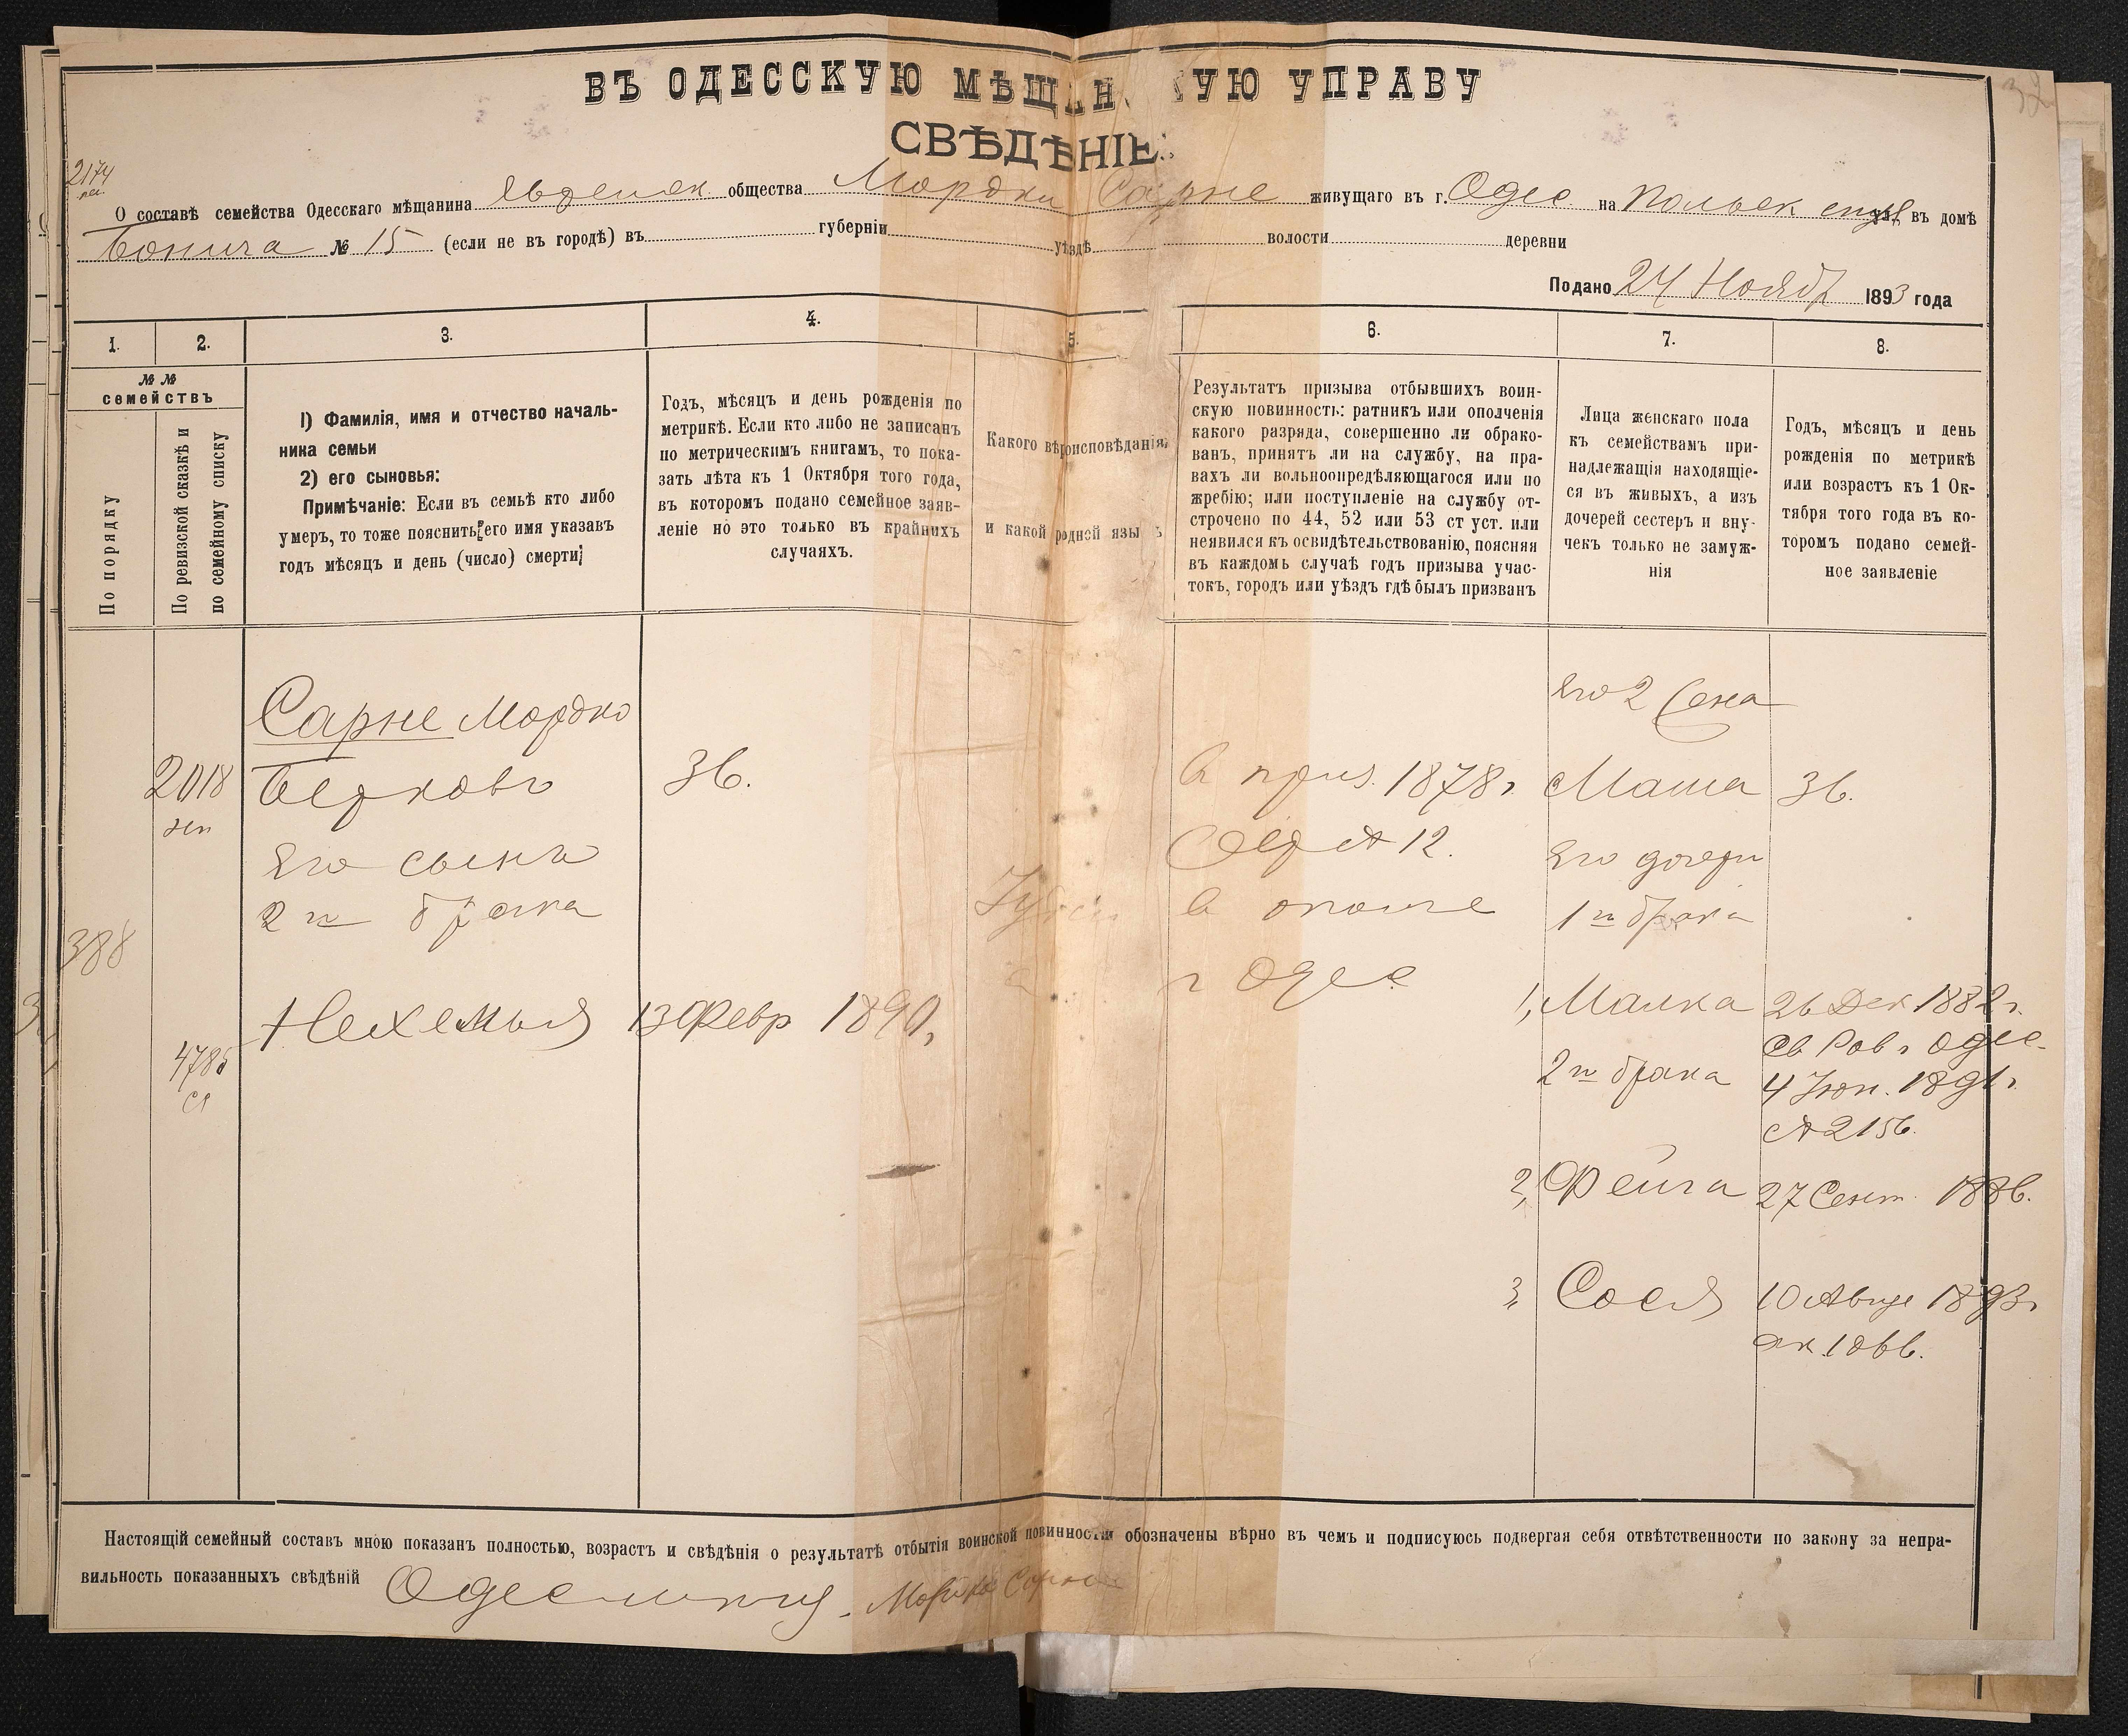 ВЪ ОДЕССКУЮ МѢЩАНСКУЮ УПРАВУ
СВѢДѢНІЕ:
2174
О составѣ семейства Одесскаго мѣщанина общества Мордки Сарне живущаго въ г. Одес на Польск ул въ домѣ
№ 15 (если не въ городѣ) въ губерніи уѣздѣ волости деревни
Подано 24 Нояб 1893 года
1. 2. 3. 4. 5. 6. 7. 8.
№ № семействъ
По порядку
По ревизской сказкѣ и по семейному списку
1) Фамилія, имя и отчество началь-
ника семьи
2) его сыновья:
Примѣчаніе: Если въ семьѣ кто либо
умеръ, то тоже пояснить его имя указавъ
годъ мѣсяцъ и день (число) смерти;
Годъ, мѣсяцъ и день рожденія по
метрикѣ. Если кто либо не записанъ
по метрическимъ книгамъ, то пока-
зать лѣта къ 1 Октября того года,
въ которомъ подано семейное заяв-
леніе но это только въ крайнихъ
случаяхъ.
Какого вѣроисповѣданія
и какой родной язы ъ
Результатъ призыва отбывшихъ воин-
скую повинность: ратникъ или ополченія
какого разряда, совершенно ли обрако-
ванъ, принятъ ли на службу, на пра-
вахъ ли вольноопредѣляющагося или по
жребію; или поступленіе на службу от-
строчено по 44, 52 или 53 ст уст. или
неявился къ освидѣтельствованію, поясняя
въ каждомъ случаѣ годъ призыва учас-
токъ, городъ или уѣздъ гдѣ былъ призванъ
Лица женскаго пола
къ семействамъ при-
надлежащія находящіе-
ся въ живыхъ, а изъ
дочерей сестеръ и вну-
чекъ только не замуж-
нія
Годъ, мѣсяцъ и день
рожденія по метрикѣ
или возрастъ къ 1 Ок-
тября того года въ ко-
торомъ подано семей-
ное заявленіе
388
2018
4785
Сарне Мордко
Берковъ
Его сынъ
2 го брака
Нехемья
36.
13 Февр 1890,
в приз. 1878 г.
12.
в
г Одес
Его 2 жена
Маша 36.
Его дочери
1 го брака
1, Малка 26 Дек 1882 г.
Св Рав г Одес.
2 го брака 4 Іюн. 1891 г.
№ 2156.
2, Фейга 27 Сент. 1886.
3, Сося 10 Авгус 1893 г
Настоящій семейный составъ мною показанъ полностью, возрастъ и свѣдѣнія о результатѣ отбытія воинской повинности обозначены вѣрно въ чемъ и подписуюсь подвергая себя отвѣтственности по закону за непра-
вильность показанныхъ свѣдѣній